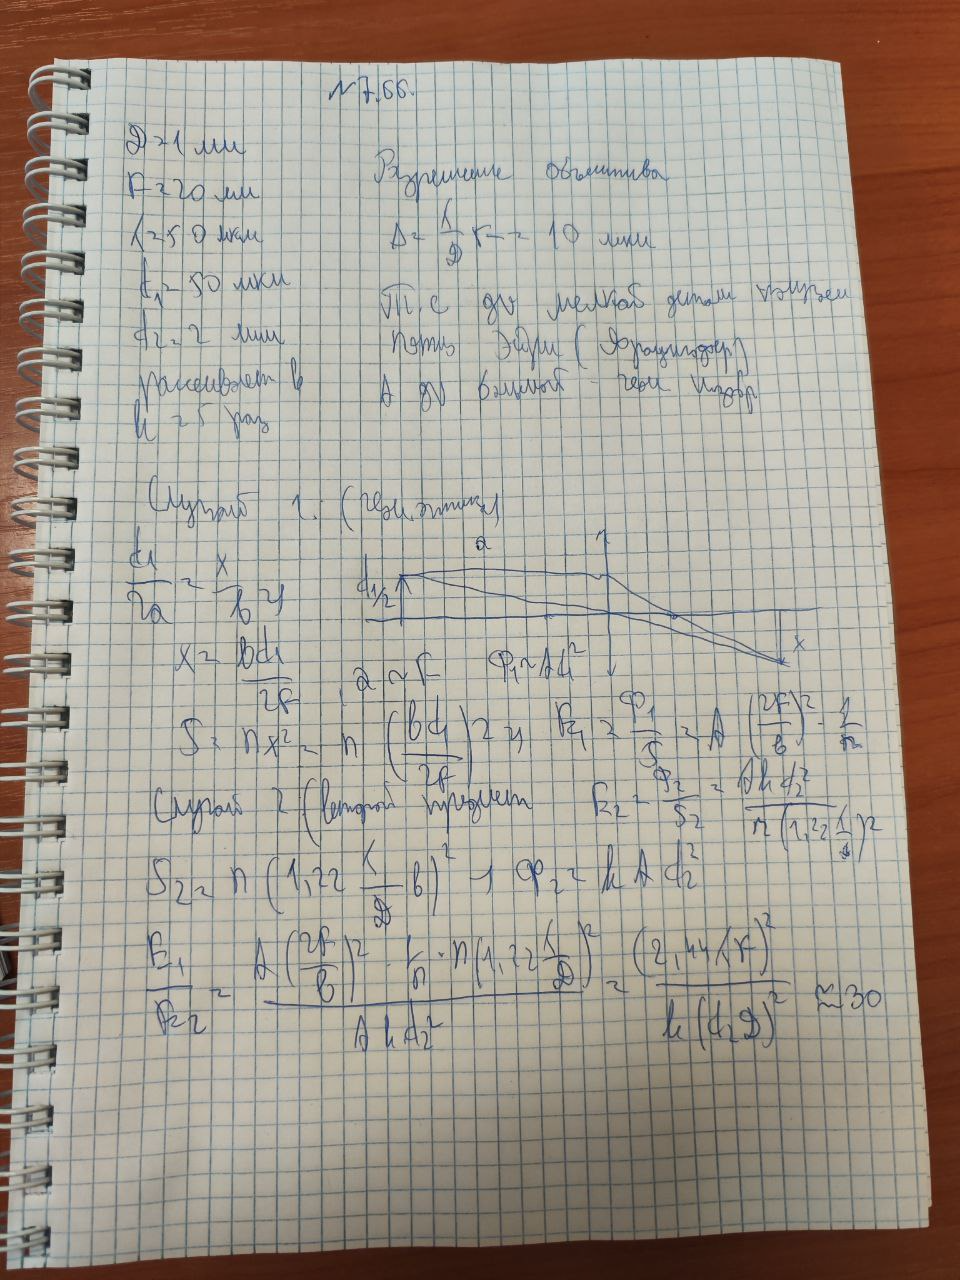 №7.66.
D = 1 мм
F = 20 мм
λ = 50 мкм
d₁ = 50 мкм
d₂ = 2 мкм
рассеивает в
k = 5 раз
Разрешение объектива
Δ = λ/D F = 10 мкм
Т.е для мелкой детали
пятно Эйри (
А для большой - геом изобр
Случай 1: (геом. оптика)
d₁/2a = x/b →
a
d₁/2
x
x = bd₁/2F , a ≈ F Φ₁ = Ad₁²
S = πx² = π (bd₁/2F)² → E₁ = Φ₁/S = A (2F/b)² · 1/π
Случай 2 (второй предмет E₂ = Φ₂/S₂ = Akd₂²/π(1,22 λ/D)²
S₂ = π (1,22 λ/D b)² → Φ₂ = k A d₂²
E₁/E₂ = A (2F/b)² · 1/π · π(1,22 λ/D)² / Akd₂² = (2,44 λF)²/k(d₂D)² ≈ 30